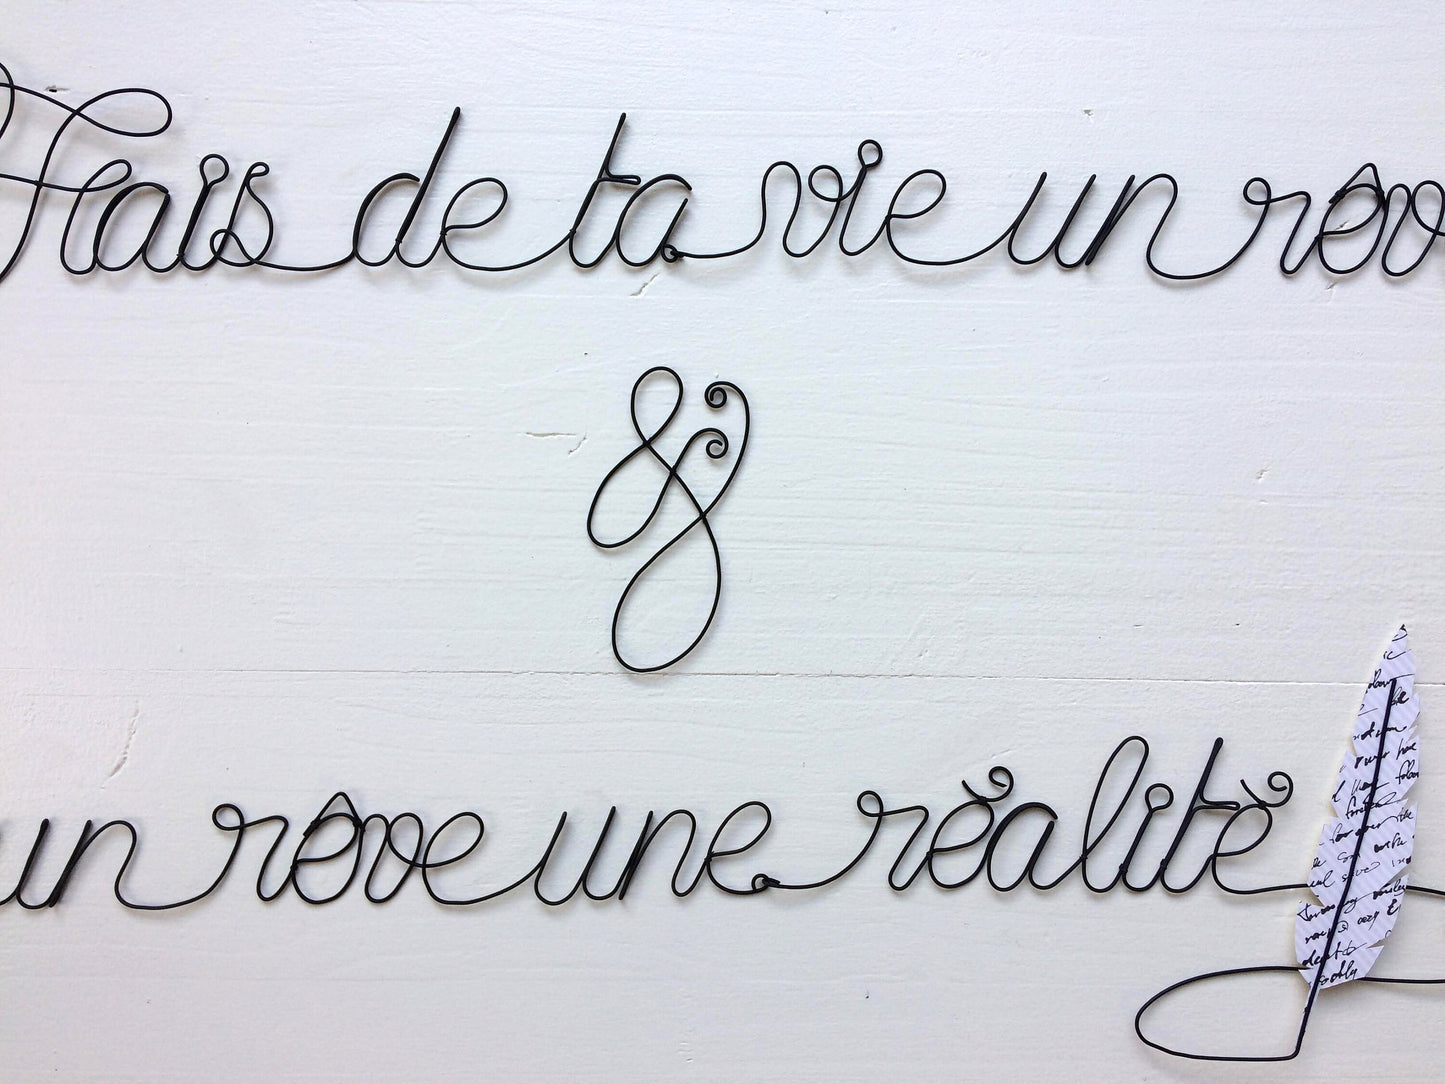 Fais de ta vie un rêv
&
un rêve une réalité